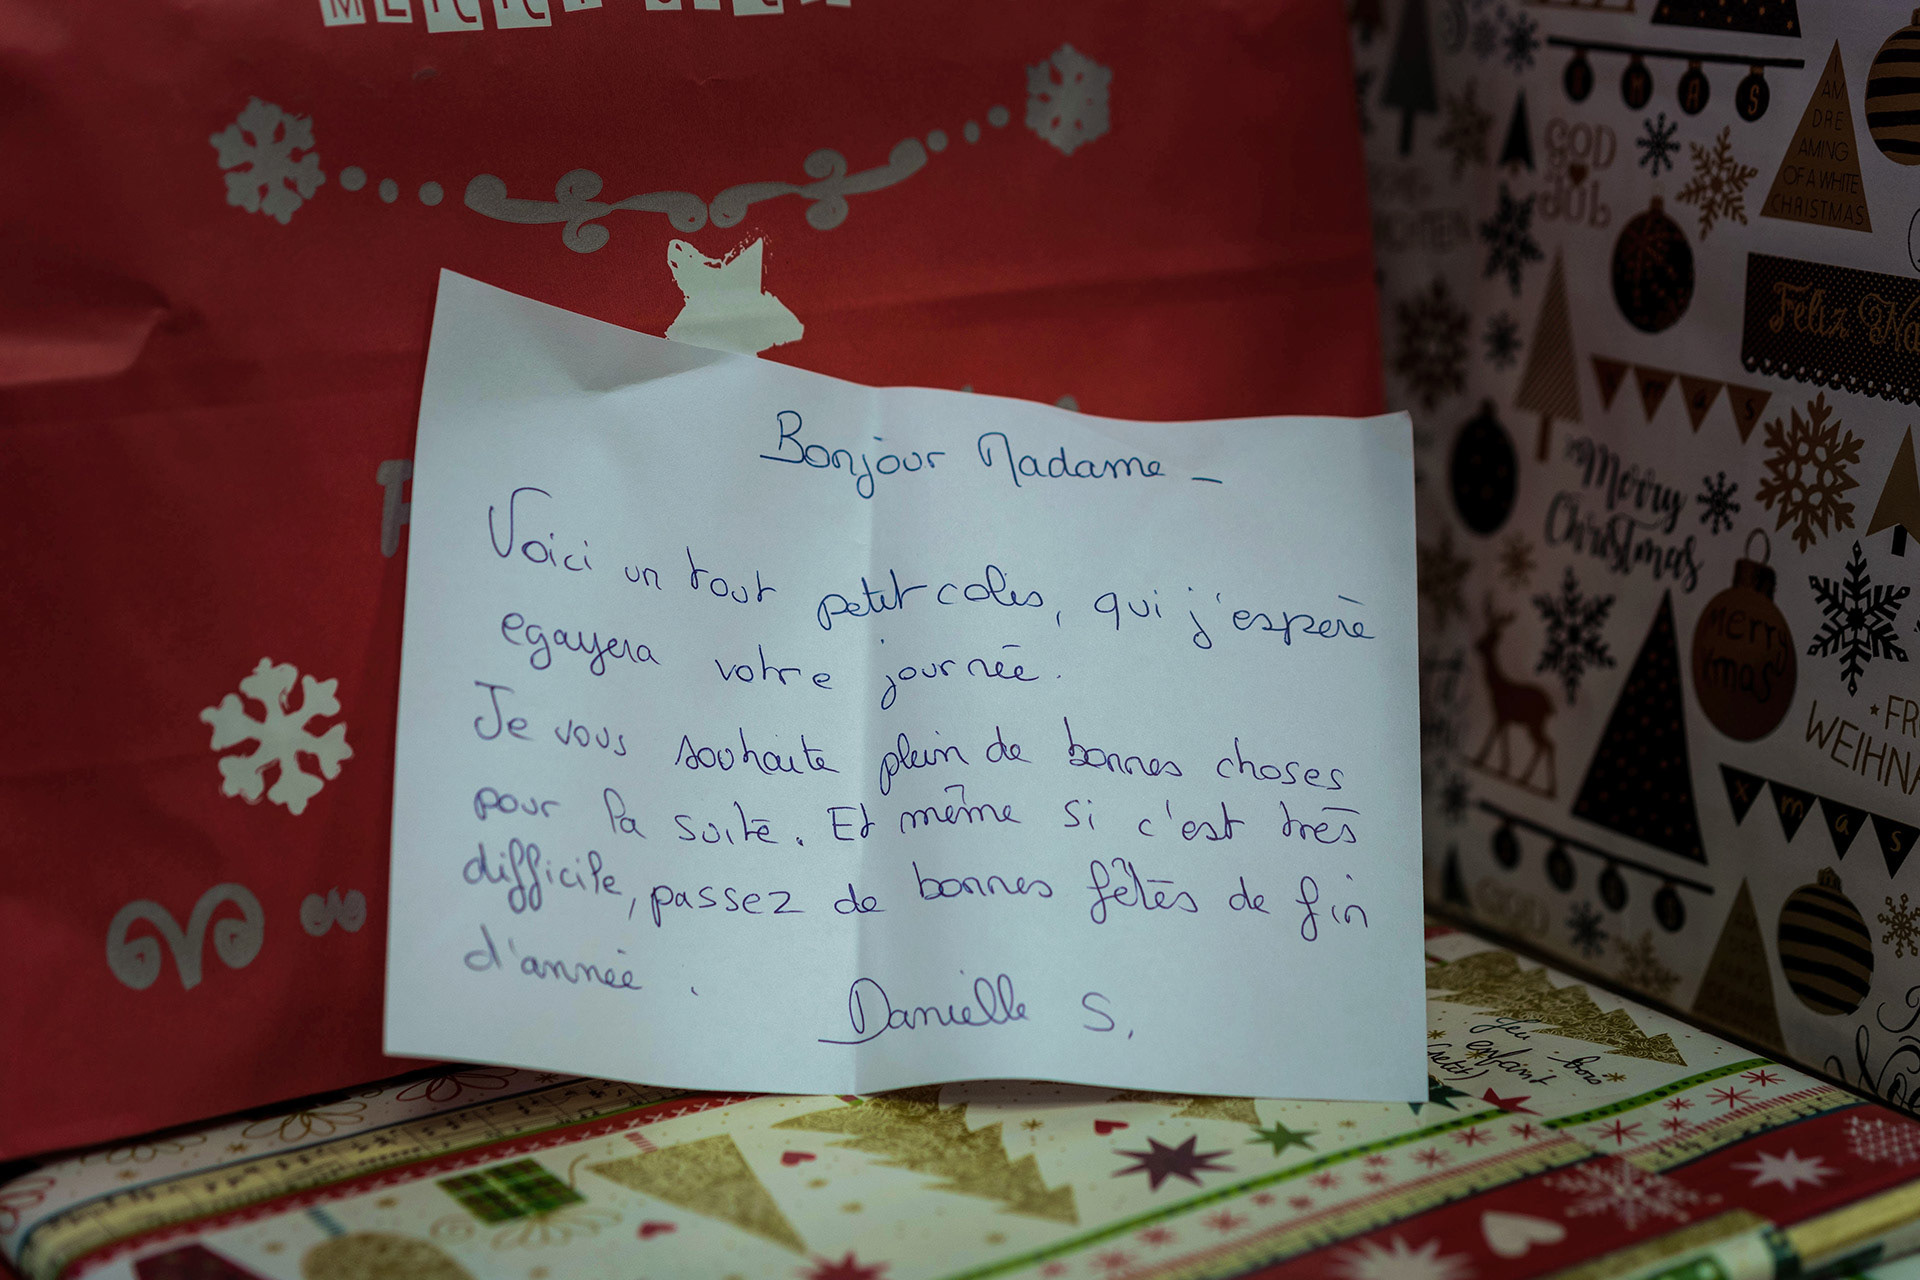 Bonjour Madame -
Voici un tout petit colis, qui j'espère
egayera votre journée.
Je vous souhaite plein de bonnes choses
pour la suite. Et même si c'est très
difficile, passez de bonnes fêtes de fin
d'année.
Danielle S.
I AM
DRE
AMING
OF A WHITE
CHRISTMAS
GOD
JUL
Feliz Na
xmas
Merry
Christmas
merry
xmas
FR
WEIHNA
xmas
GOD
Jeu : bois
enfant
(petit)